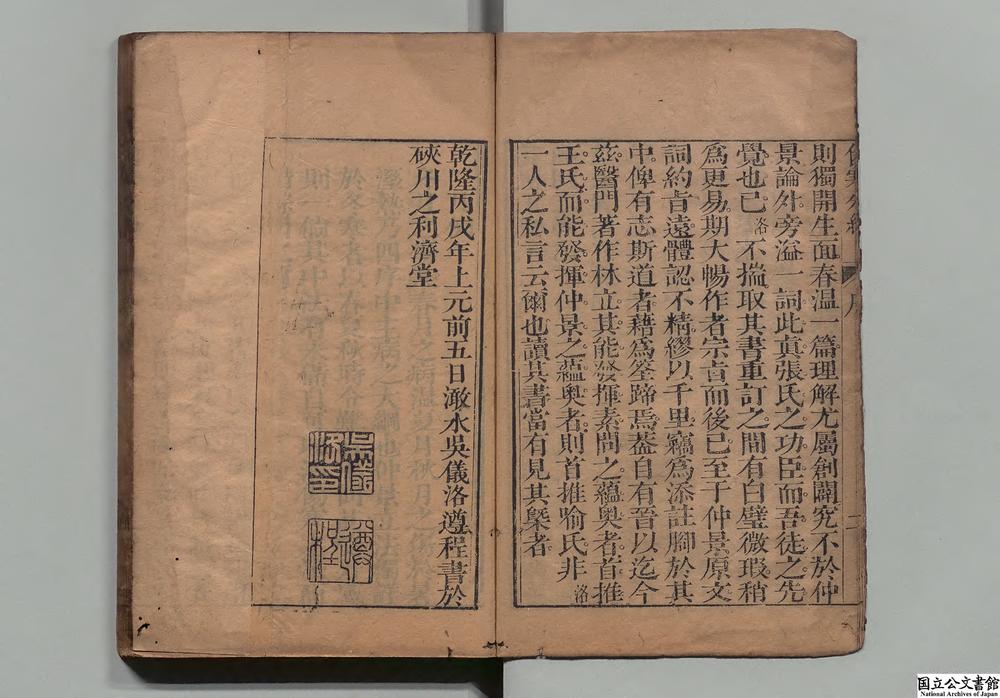 則獨開生面春温一篇理解尤屬創闢究不於仲
景論外旁溢一詞此真張氏之功臣而吾徒之先
覺也已洛不揣取其書重訂之間有白璧微瑕稍
爲更易期大暢作者宗旨而後已至于仲景原文
詞約旨遠體認不精繆以千里竊爲添註腳於其
中俾有志斯道者藉爲筌蹄焉蓋自有晉以迄今
茲醫門著作林立其能發揮素問之蘊奥者首推
王氏而能發揮仲景之蘊奥者則首推喻氏非洛
一人之私言云爾也讀其書當有見其槩者
乾隆丙戌年上元前五日澉水吳儀洛遵程書於
硤川之利濟堂
吳儀洛印
遵程
国立公文書館
National Archives of Japan